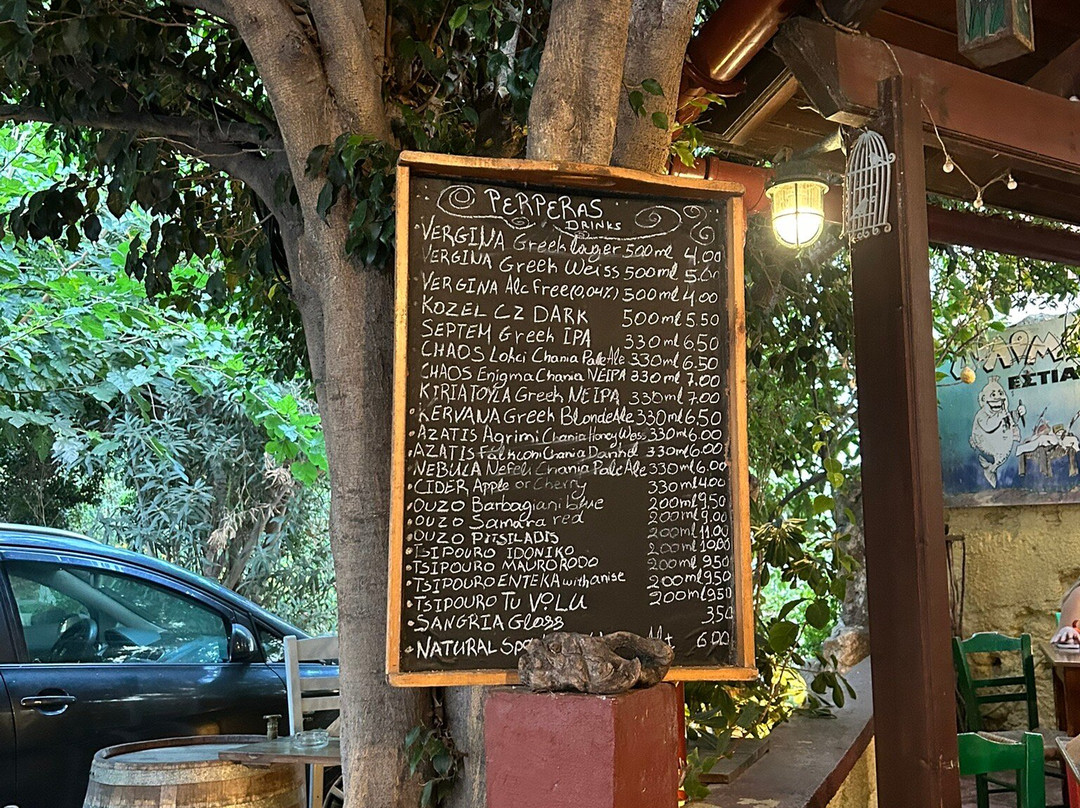 PERPERAS
DRINKS
VERGINA Greek Lager 500ml 4.00
VERGINA Greek Weiss 500ml 5.00
VERGINA Alc Free (0,04%) 500ml 4.00
KOZEL CZ DARK 500ml 5.50
SEPTEM Greek IPA 330ml 6,50
CHAOS Lohci Chania Pale Ale 330ml 6.50
CHAOS Enigma Chania NEIPA 330ml 7,00
KIRIATOYLA Greek NEIPA 330ml 7.00
•KERVANA Greek Blonde Ale 330ml 6,50
•AZATIS Agrimi Chania Honey Weiss 330ml 6.00
•AZATIS Chania 330ml 6.00
•NEBULA Nefeli Chania Pale Ale 330ml 6,00
•CIDER Apple or Cherry 330ml 4,00
•OUZO Barbagiani blue 200ml 9,50
•OUZO Samara red 200ml 9,00
•OUZO PITSILADIS 200ml 11,00
•TSIPOURO IDONIKO 200ml 10,00
•TSIPOURO MAURORODO 200ml 9,50
•TSIPOURO ENTEKA with anise 200ml 9,50
•TSIPOURO TU VOLU 200ml 9,50
•SANGRIA Glass 3,50
•NATURAL 6,00
ΕΣΤΙΑ